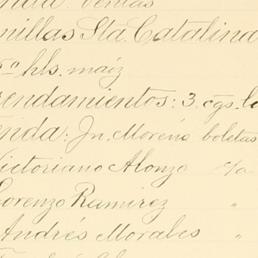 ventas
millas Sta Catalina
hls. maíz
endamientos: 3. cgs. lo
enda: Jn. Moreno boletas
ictoriano Alonzo c/a
orenzo Ramirez "
Andrés Morales "